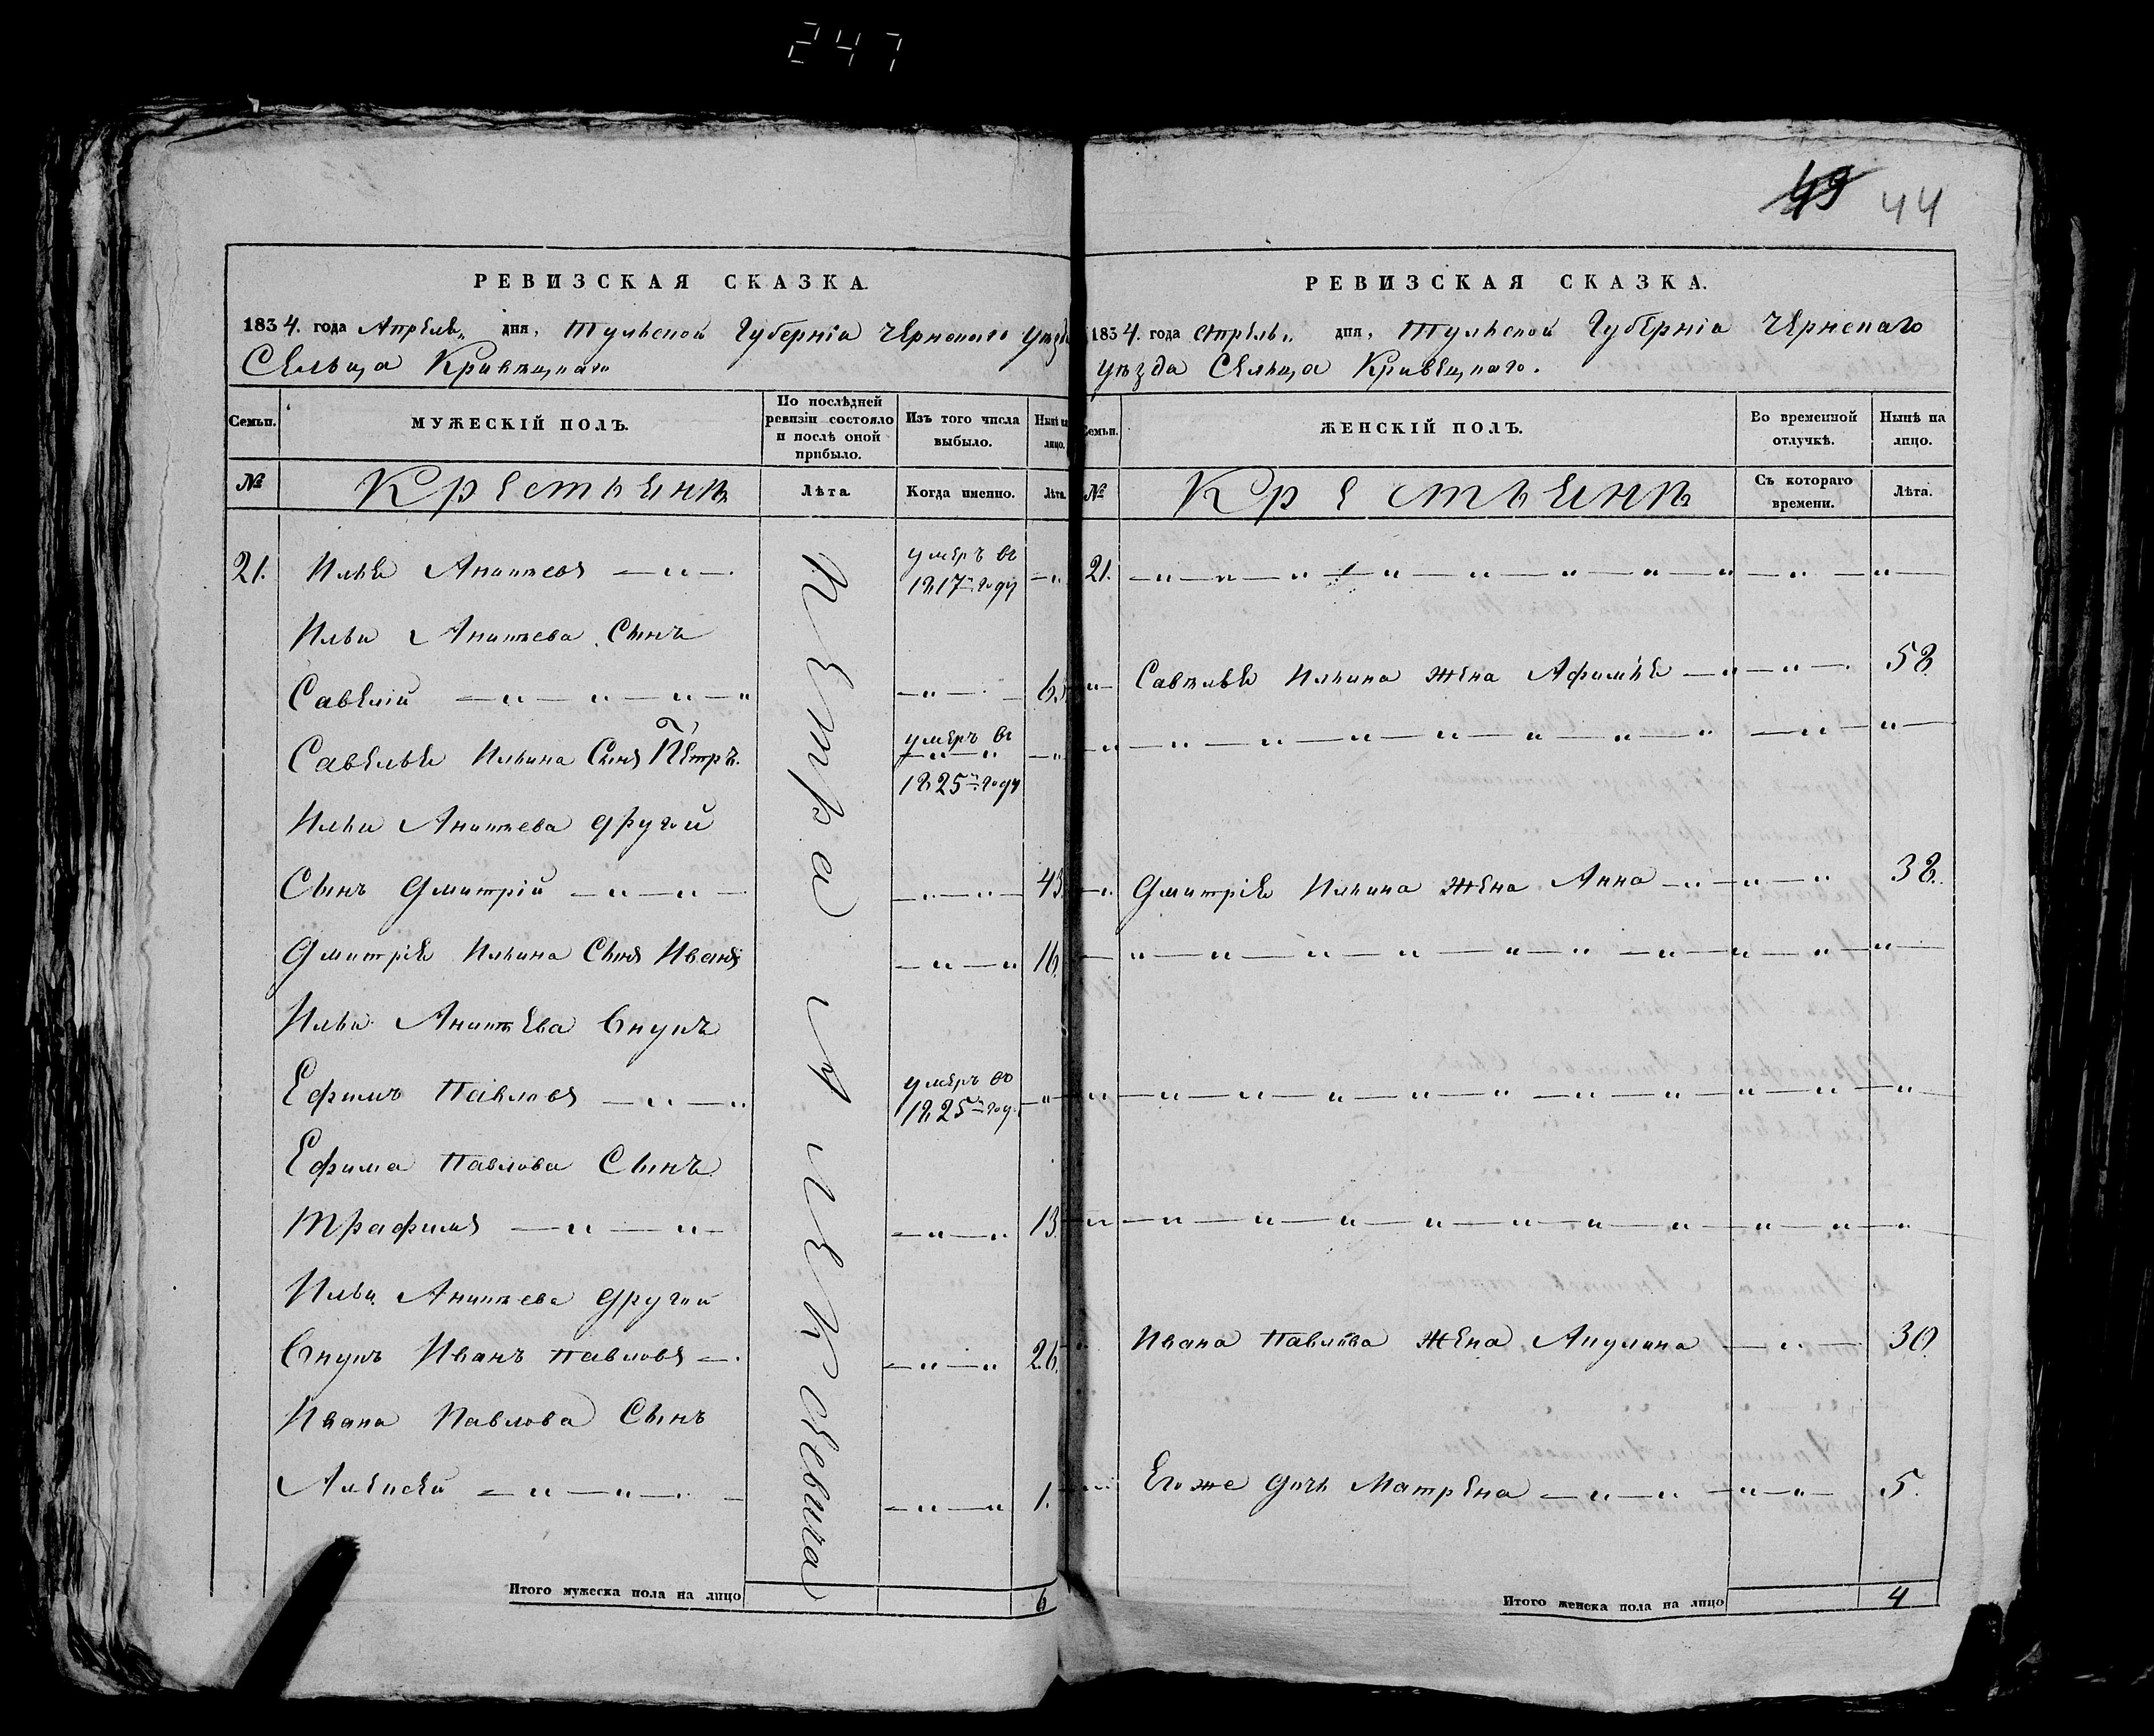 247
49 44
РЕВИЗСКАЯ СКАЗКА.
1834. года Апреля „ дня, Тульской Губернiи Чернскаго уезда
Сельца Кривецкаго
Семьи.
МУЖЕСКІЙ ПОЛЪ.
По послѣдней ревизіи состояло и послѣ оной прибыло.
Изъ того числа выбыло.
Нынѣ на лицо.
№
Крестьянъ
Лѣта.
Когда именно.
Лѣта.
21. Илья Анитьевъ — „ — умеръ въ 1817м году — „
Ильи Анитьева Сынъ
Савелiй — „ — „ — „ — „ — „ —
Савелья Ильина Сынъ Петръ. умеръ въ 1825м году — „
Ильи Анитьева другой
Сынъ Дмитрiй — „ — „ — — „ — „ — 43
Дмитрiя Ильина Сынъ Иванъ — „ — „ 16.
Ильи Анитьева внукъ
Ефимъ Павловъ — „ — „ умеръ въ 1825м год. — „
Ефима Павлова Сынъ
Трафимъ — „ — „ — — „ — „ 13.
Ильи Анитьева другой
внукъ Иванъ Павловъ — . — „ — „ 26.
Ивана Павлова Сынъ
Алексей — „ — „ — — „ — „ 1.
Петра Алексевича
Итого мужеска пола на лицо 6
РЕВИЗСКАЯ СКАЗКА.
1834. года Апреля „ дня, Тульской Губернiи Чернскаго
уезда Сельца Кривецкаго.
Семьи.
ЖЕНСКІЙ ПОЛЪ.
Во временной отлучкѣ.
Нынѣ на лицо.
№
Крестьянъ
Съ котораго времени.
Лѣта.
21. — „ — „ — „ — „ — „ — „ — „ — „ — „ —
„ Савелья Ильина жена Афимья — „ — „ — 58
„ — „ — „ — „ — „ — „ — „ — „ — „ —
„ Дмитрiя Ильина жена Анна — „ — „ — „ 38.
— „ — „ — „ — „ — „ — „ — „ — „ — „ —
„ — „ — „ — „ — „ — „ — „ — „ — „ — „
„ — „ — „ — „ — „ — „ — „ — „ — „ — „
„ Ивана Павлова жена Акулина — „ — 30
„ Егоже дочь Матрена — „ — „ — „ — „ — 5.
Итого женска пола на лицо 4